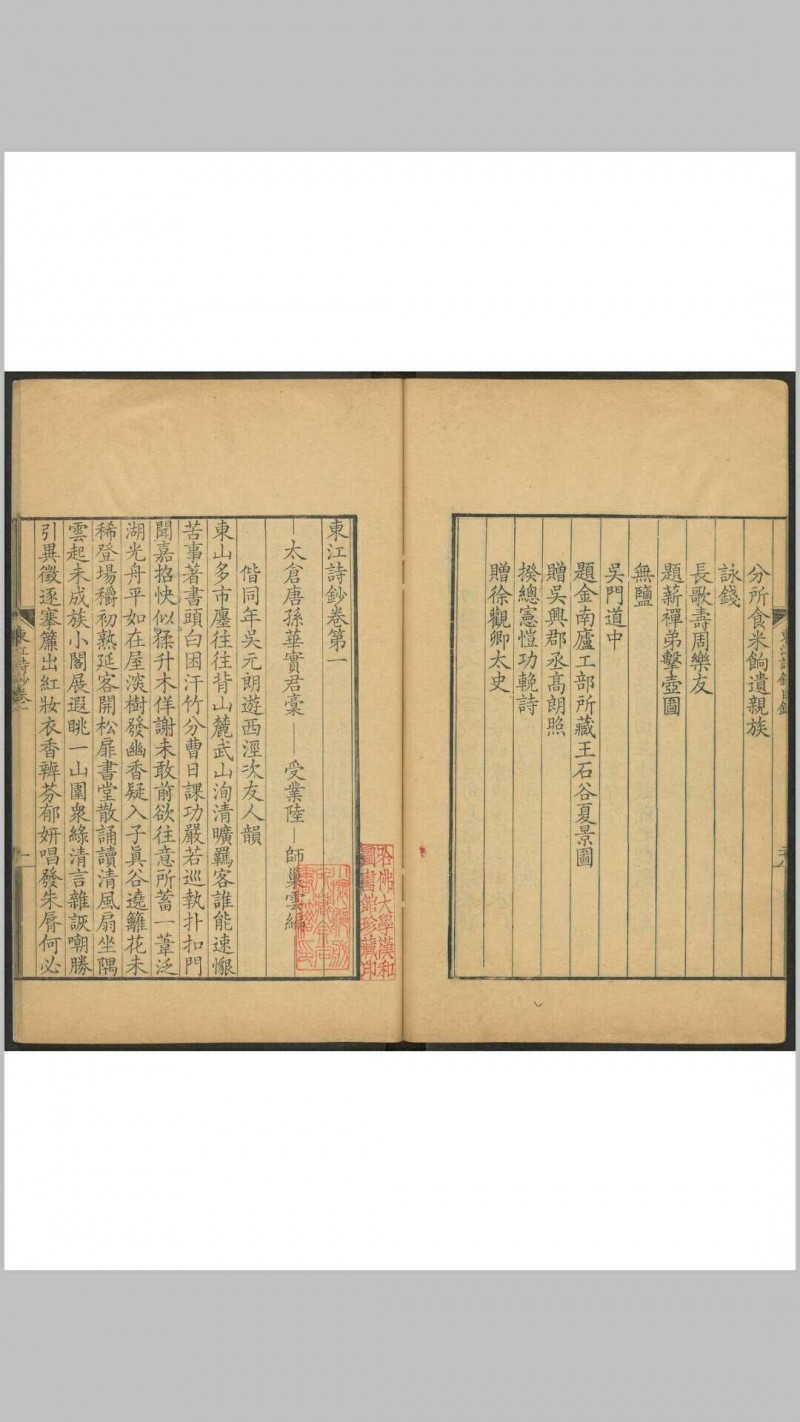 分所食米餉遺親族
詠錢
長歌壽周樂友
題薪禪弟擊壺圖
無鹽
吳門道中
題金南廬工部所藏王石谷夏景圖
贈吳興郡丞高朗照
揆總憲愷功輓詩
贈徐觀卿太史
東江詩鈔卷第一
太倉唐孫華實君稾 受業陸 師巢雲編
偕同年吳元朗遊西涇次友人韻
東山多市廛往往背山麓武山洵清曠羈客誰能速懶
苦事著書頭白困汗竹分曹日課功嚴若巡執扑扣門
聞嘉招快似猱升木佯謝未敢前欲往意所蓄一葦泛
湖光舟平如在屋淡樹發幽香疑入子眞谷遶籬花未
稀登場穱初熟延客開松扉書堂散誦讀清風扇坐隅
雲起未成族小閣展遐眺一山圍衆綠清言雜詼嘲勝
引異徵逐搴簾出紅妝衣香辨芬郁妍唱發朱脣何必
東江詩鈔卷一
一
哈佛大學漢和
圖書館珍藏印